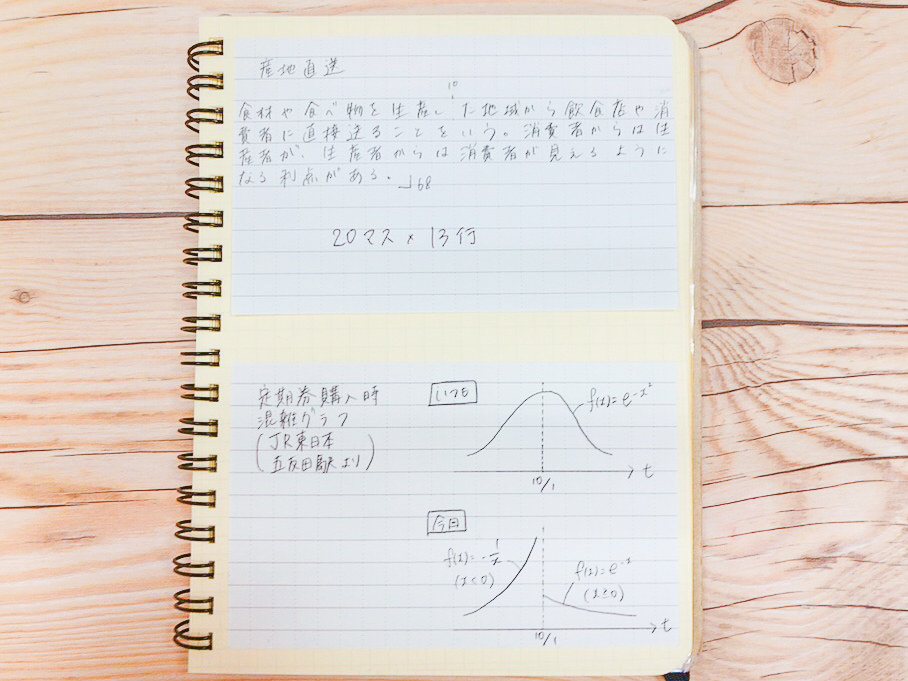 産地直送
10
食材や食べ物を生産した地域から飲食店や消
費者に直接送ることをいう。消費者からは生
産者が、生産者からは消費者が見えるように
なる利点がある。」68
20マス×13行
定期券購入時
混雑グラフ
(JR東日本
五反田駅より)
いつも
f(x)=e^-x²
t
10/1
今回
f(x)=-1/x
(x<0)
f(x)=e^-x
(x≥0)
t
10/1